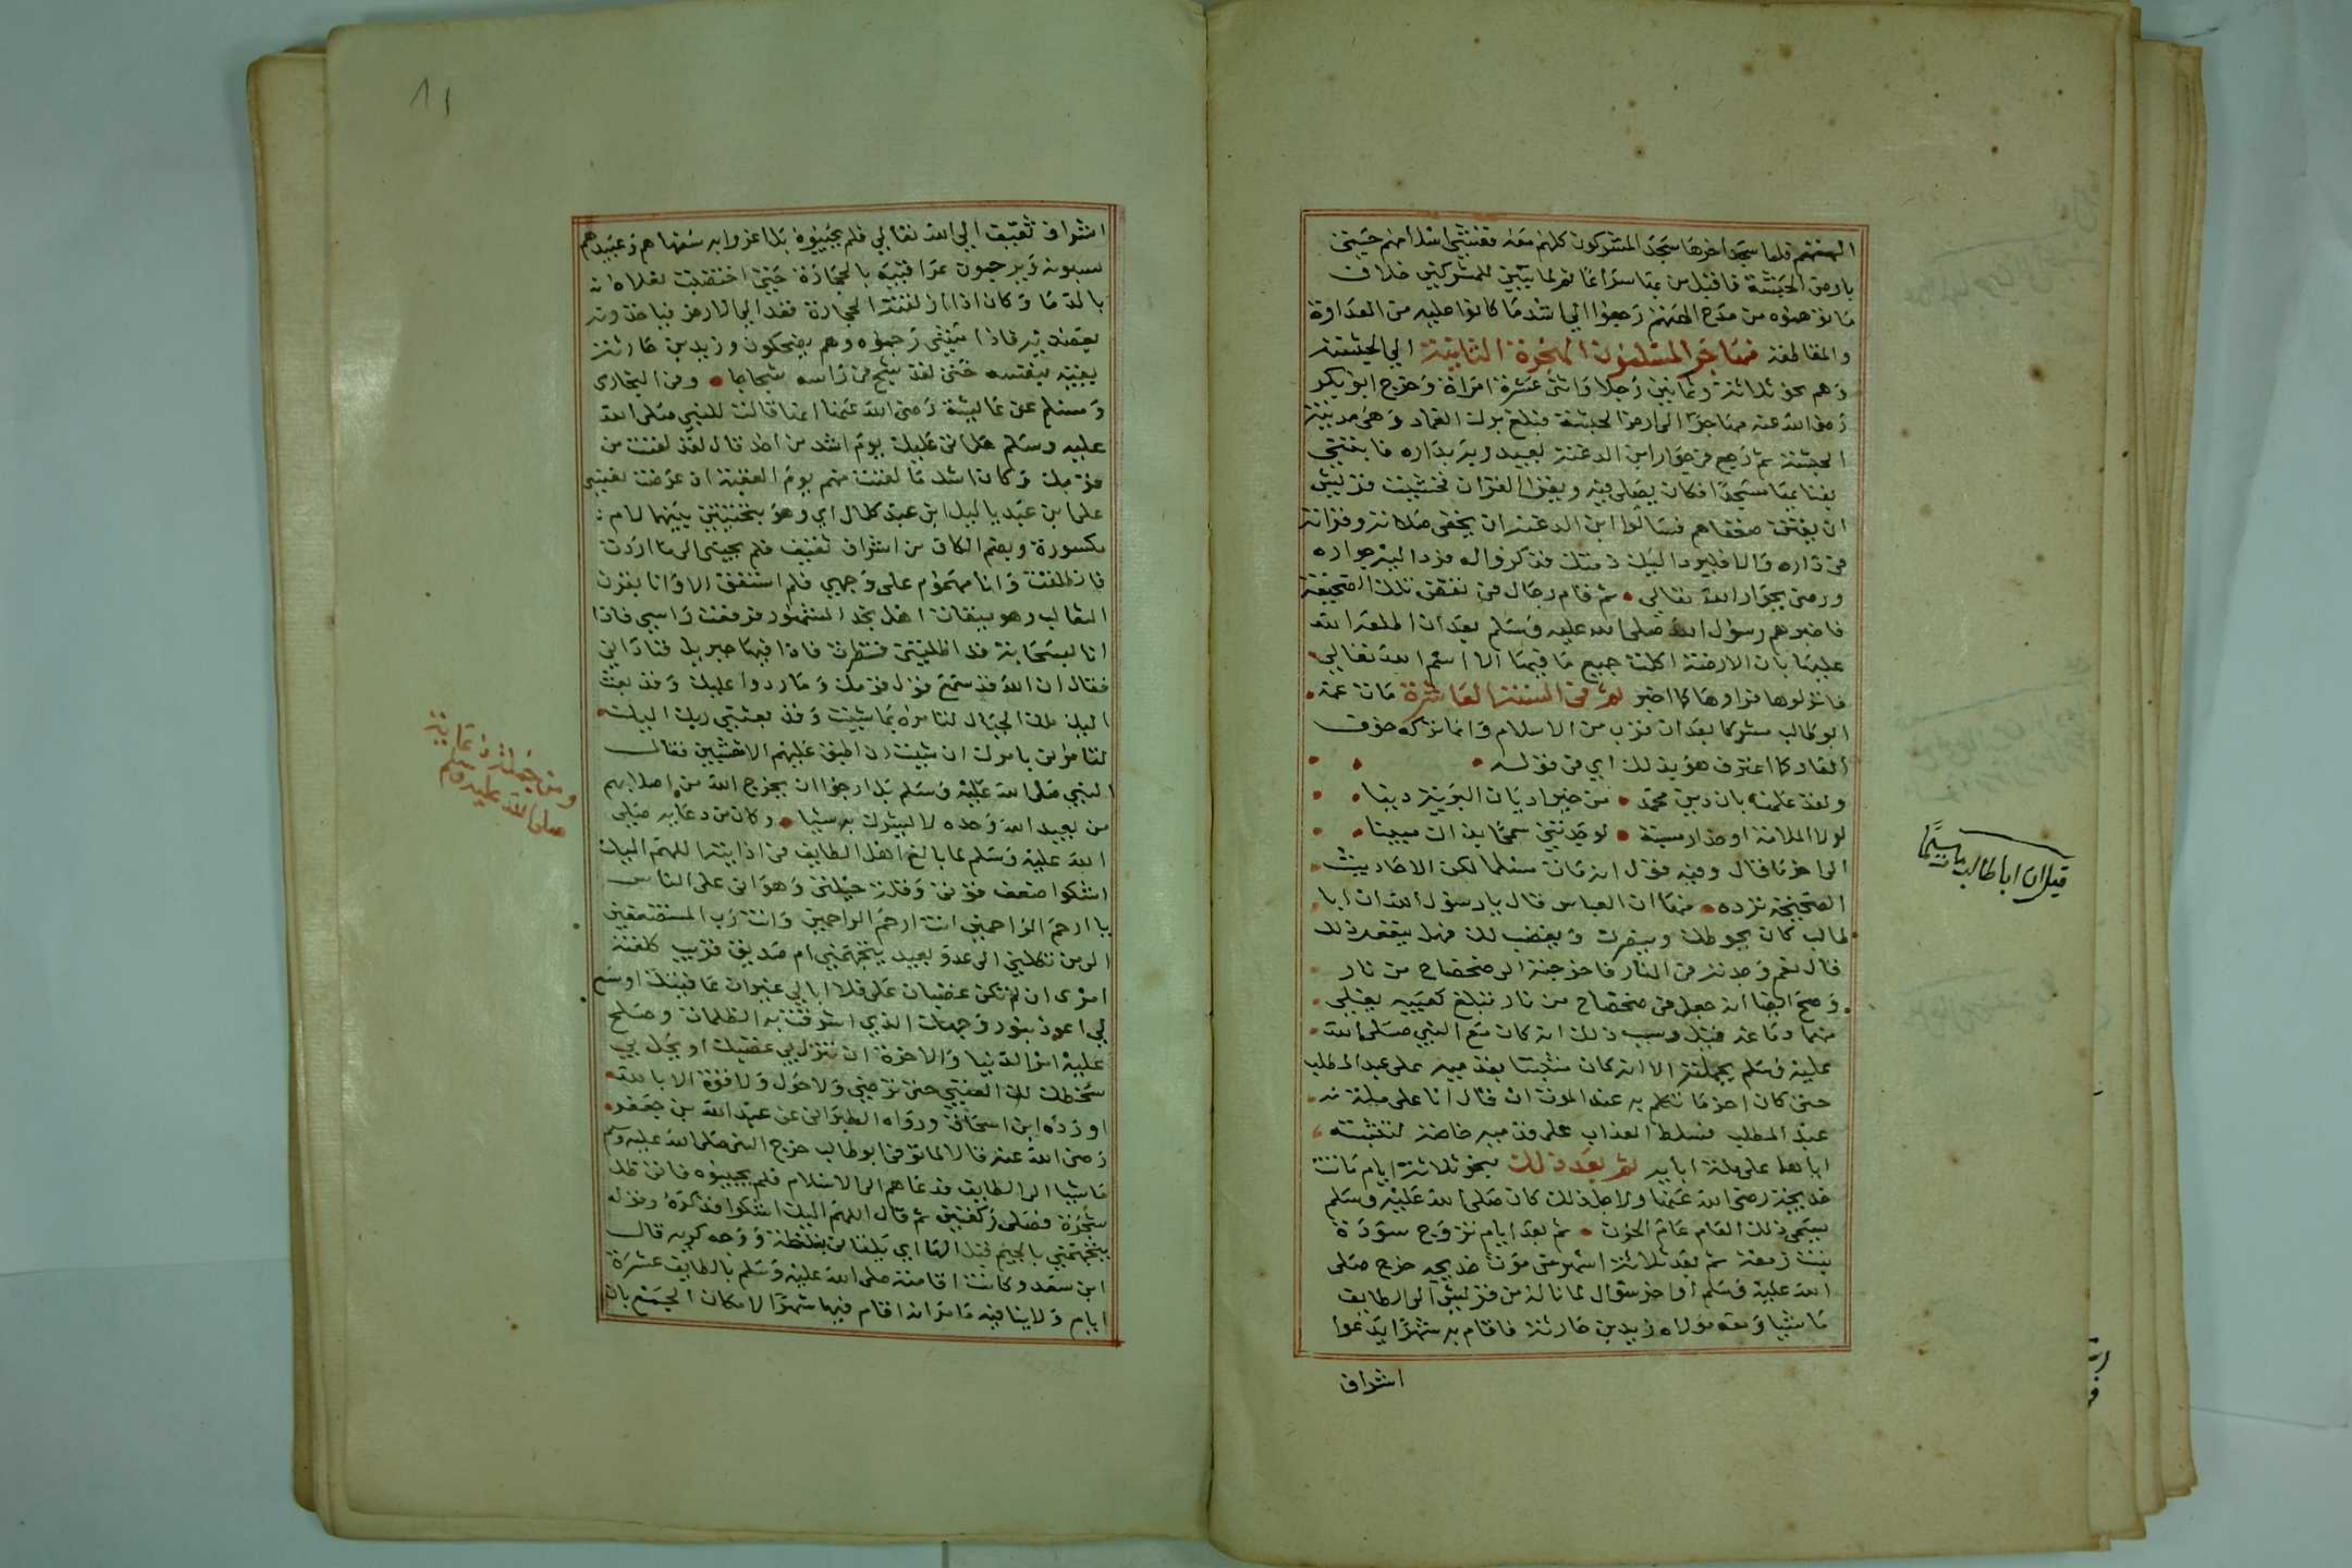 الهتهم فلما سجد اخرها سجد المشركون كلهم معه ففشى اسلامهم حتى
بارض الحبشة فاقبل من بها سراعا ثم لما تبين للمشركين خلاف
ما توهموه من مدح الهتهم رجعوا الي اشد ما كانوا عليه من العداوة
والمقاطعة فهاجر المسلمون الهجرة الثانية الي الحبشة
وهم نحو ثلاثة وثمانين رجلا واثنى عشرة امراة وخرج ابو بكر
رضى الله عنه مهاجرا الى ارض الحبشة فبلغ برك الغماد وهى مدينة
الحبشة ثم رجع فى جوار ابن الدغنة ليعبد ربه بداره فابتني
بفنائها مسجدا فكان يصلى فيه ويقرا القران فخشيت قريش
ان يفتتن ضعفاهم فسالوا ابن الدغنة ان يخفى صلاته وقراته
فى داره والا فليرد اليك ذمتك فذكروا له فرد اليه جواره
ورضى بجوار الله تعالي • ثم قام رجال فى نقض تلك الصحيفة
فاخبرهم رسول الله صلى الله عليه وسلم بعد ان اطلعه الله
عليها بان الارضة اكلت جميع ما فيها الا اسم الله تعالي
فانزلوها فراوها كما اخبر ثم فى السنة العاشرة مات عمه
ابو طالب مشركا بعد ان قرب من الاسلام وانما تركه خوف
العار كما اعترف هو بذلك اي فى قوله •
ولقد علمت بان دين محمد • من خير اديان البرية دينا
لولا الملامة او حذار مسبة • لوجدتني سمحا بذاك مبينا
الى اخر ما قال وفيه قول انه مات مسلما لكن الاحاديث
الصحيحة ترده • منها ان العباس قال يا رسول الله ان ابا
طالب كان يحوطك وينصرك ويغضب لك فهل ينفعه ذلك
قال نعم وجدته فى النار فاخرجته الى ضحضاح من نار
وصح ايضا انه جعل فى ضحضاح من نار تبلغ كعبيه يغلي
منها دماغه قيل وسبب ذلك انه كان مع النبي صلى الله
عليه وسلم بجملته الا انه كان مثبتا بقدميه على عبد المطلب
حتى كان اخر ما تكلم به عند الموت ان قال انا على ملة
عبد المطلب فسلط العذاب على قدميه خاصة لتثبته
اياهما على ملة ابايه ثم بعد ذلك بنحو ثلاثة ايام ماتت
خديجة رضى الله عنها ولاجل ذلك كان صلى الله عليه وسلم
يسمى ذلك العام عام الحزن • ثم بعد ايام تزوج سودة
بنت زمعة ثم بعد ثلاثة اشهر من موت خديجه خرج صلى
الله عليه وسلم اواخر شوال لما ناله من قريش الى الطايف
ماشيا ومعه مولاه زيد بن حارثة فاقام به شهرا يدعوا
اشراف
قيل ان ابا طالب مات مسلما
١١
اشراف ثقيف الي الله تعالي فلم يجيبوه بل اغروا به سفهاهم وعبيدهم
يسبونه ويرجمون عراقيبه بالحجارة حتى اختضبت نعلاه
بالدما وكان اذا ازلقته الحجارة قعد الى الارض فياخذونه
بعضديه فاذا مشى رجموه وهم يضحكون وزيد بن حارثة
يقيه بنفسه حتى لقد شج فى راسه شجاجا • وفى البخارى
ومسلم عن عايشة رضى الله عنها انها قالت للنبي صلى الله
عليه وسلم هل اتى عليك يوم اشد من احد قال لقد لقيت من
قومك وكان اشد ما لقيت منهم يوم العقبة ان عرضت نفسي
على ابن عبد ياليل ابن عبد كلال اي وهو بتحتيتين بينهما لام
مكسورة وبضم الكاف من اشراف ثقيف فلم يجبنى الى ما اردت
فانطلقت وانا مهموم على وجهي فلم استفق الا وانا بقرن
الثعالب وهو ميقات اهل نجد المشهور فرفعت راسي فاذا
انا بسحابة قد اظلتنى فنظرت فاذا فيها جبريل فنادانى
فقال ان الله قد سمع قول قومك وما ردوا عليك وقد بعث
اليك ملك الجبال لتامره بما شيت وقد بعثني ربك اليك
لتامرنى بامرك ان شيت ان اطبق عليهم الاخشبين فقال
النبي صلى الله عليه وسلم بل ارجوا ان يخرج الله من اصلابهم
من يعبد الله وحده لا يشرك به شيا • وكان من دعايه صلى
الله عليه وسلم لما بالغ اهل الطايف فى اذايته اللهم اليك
اشكوا ضعف قوتى وقلة حيلتى وهوانى على الناس
يا ارحم الراحمين انت ارحم الراحمين وانت رب المستضعفين
الى من تكلني الى عدو بعيد يتجهمني ام صديق قريب كلفته
امرى ان لم تكن غضبان على فلا ابالي غير ان عافيتك اوسع
لي اعوذ بنور وجهك الذي اشرقت به الظلمات وصلح
عليه امر الدنيا والاخرة ان تنزل بي غضبك او يحل بي
سخطك لك العتبى حتى ترضي ولا حول ولا قوة الا بالله
اورده ابن اسحاق ورواه الطبرانى عن عبد الله بن جعفر
رضى الله عنه قال لما توفى ابو طالب خرج النبى صلى الله عليه وسلم
ماشيا الى الطايف فدعاهم الى الاسلام فلم يجيبوه فاتى ظل
شجرة فصلى ركعتين ثم قال اللهم اليك اشكوا فذكره وقوله
يتجهمني بالجيم قبل الها اي يلقاني بغلظة ووجه كريه قال
ابن سعد وكانت اقامته صلى الله عليه وسلم بالطايف عشرة
ايام ولا ينافيه ما مر انه اقام فيها شهرا لامكان الجمع بان
ومن جملة دعايه
صلى الله عليه وسلم